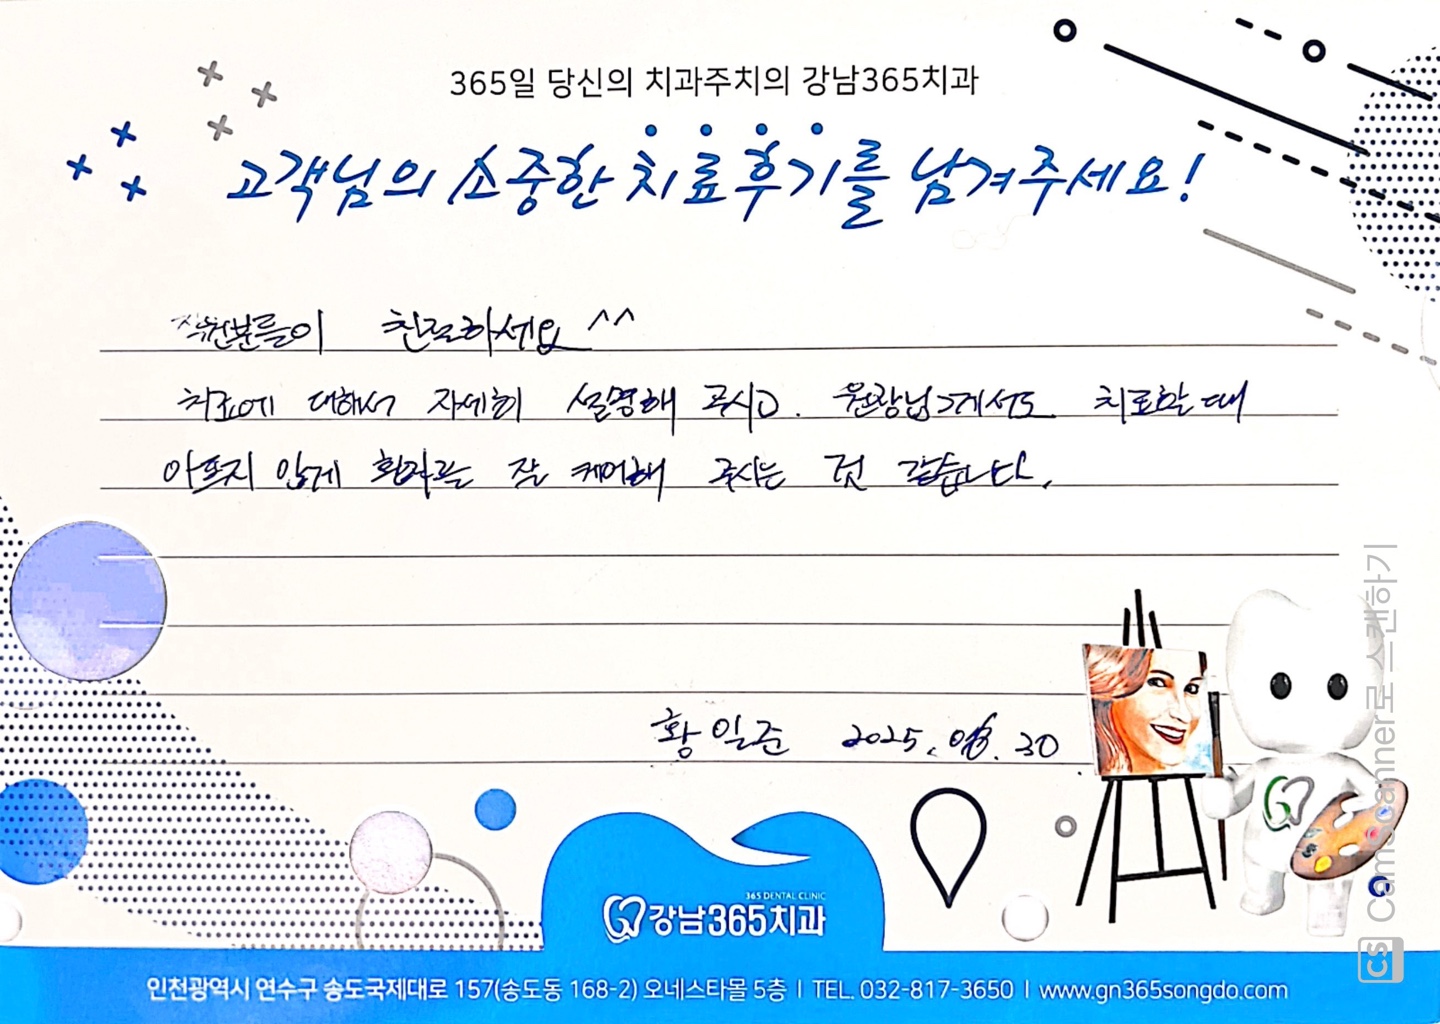 365일 당신의 치과주치의 강남365치과
고객님의 소중한 치료후기를 남겨주세요!
직원분들이 친절하세요 ^^
치료에 대해서 자세히 설명해 주시고. 원장님께서도 치료할 때
아프지 않게 환자를 잘 케어해 주시는 것 같습니다.
황일준 2025. . 30
365 DENTAL CLINIC
강남365치과
인천광역시 연수구 송도국제대로 157(송도동 168-2) 오네스타몰 5층 | TEL. 032-817-3650 | www.gn365songdo.com
CS CamScanner로 스캔하기